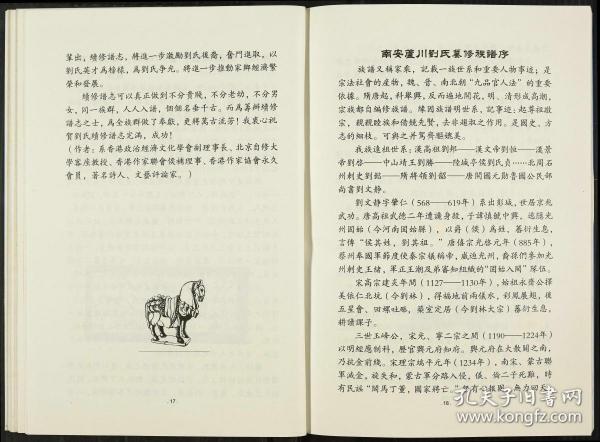 輩出，續修譜志，將進一步激勵劉氏後裔，奮鬥進取，以
劉氏英才爲榜樣，爲劉氏爭光。將進一步推動家鄉經濟繁
榮和發展。
續修譜志可以真正做到不分貴賤，不分老幼，不分男
女，同一族群，人人入譜，個個名垂千古。而爲籌辦續修
譜志之士，爲全族群做了奉獻，更將萬古流芳！我衷心祝
賀劉氏續修譜志完滿，成功！
（作者：系香港政治經濟文化學會副理事長、北京自修大
學客座教授、香港作家聯會候補理事、香港作家協會永久
會員，著名詩人、文藝評論家。）
17
南安蘆川劉氏纂修族譜序
族譜又稱家乘，記載一族世系和重要人物事迹；是
宗法社會的産物，魏、晉、南北朝“九品官人法”的重要
依據。隋唐起，科舉興，反而遍地開花，明、清形成高潮，
宗族都自編修族譜。緣因族譜明世系，記事迹；起尊祖敬
宗，親親睦族和借鏡先賢，去非趨淑之作用。是國史、方
志的細枝。可與之并駕齊驅媲美。
我族遠祖世系：漢高祖劉邦——漢文帝劉恒——漢景
帝劉啓——中山靖王劉勝——陸城亭侯劉貞……北周石
州刺史劉懿——隋將領劉韶——唐開國元勛魯國公民部
尚書劉文静。
劉文静字肇仁（568——619年）系出彭城，世居京兆
武功。唐高祖武德二年遭讒身殁，子諱慎徙中興，逃隱光
州固始（今河南固始縣），以爵（侯）爲姓，蕃衍生息，
言傳“侯其姓，劉其祖。”唐僖宗光啓元年（885年），
蔡州奉國軍節度使秦宗權稱帝，威迫光州，裔孫們參加光
州刺史王緒，軍正王潮及弟審知組織的“固始入閩”隊伍。
宋高宗建炎年間（1127——1130年），始祖永齋公擇
美依仁北坑（今劉林），得福地前兩儀水，彩鳳展翅，後
五星會，田螺吐瓯，築室定居（今劉林大宗）蕃衍生息，
耕讀課子。
三世玉峰公，宋光、寧二宗之間（1190——1224年）
以明經應制科，歷官興元府知府。興元府在大散關之南，
乃抗金前綫。宋理宗端平元年（1234年），南宋、蒙古聯
軍滅金，旋失和，蒙古軍分路入侵，儀、倫二子死難，時
有民謡“閻馬丁董，國家將亡。”
18
孔夫子旧书网